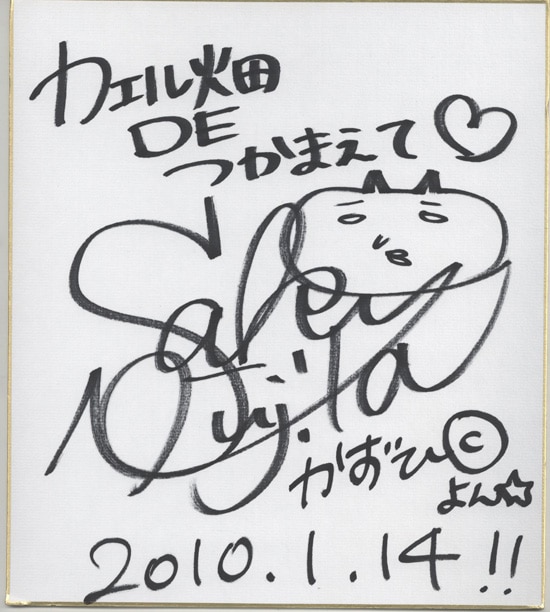 カエル畑
DE
つかまえて♡
Saki
Fujita
かずひ©
よん☆
2010.1.14!!